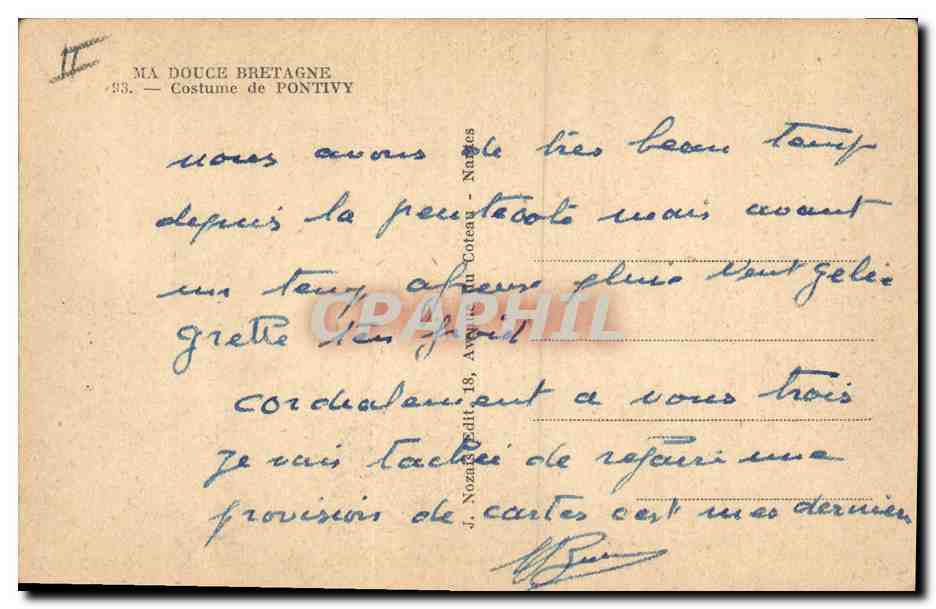 II
MA DOUCE BRETAGNE
93. — Costume de PONTIVY
nous avons de très beau temp
depuis la pentecote mais avant
un temp afreux pluie vent gelée
grelle ten froid
cordialement a vous trois
je vais tacher de refaire une
provision de cartes cest mes dernier
J. Nozais Edit. 18, Avenue du Coteau - Nantes
CPAPHIL